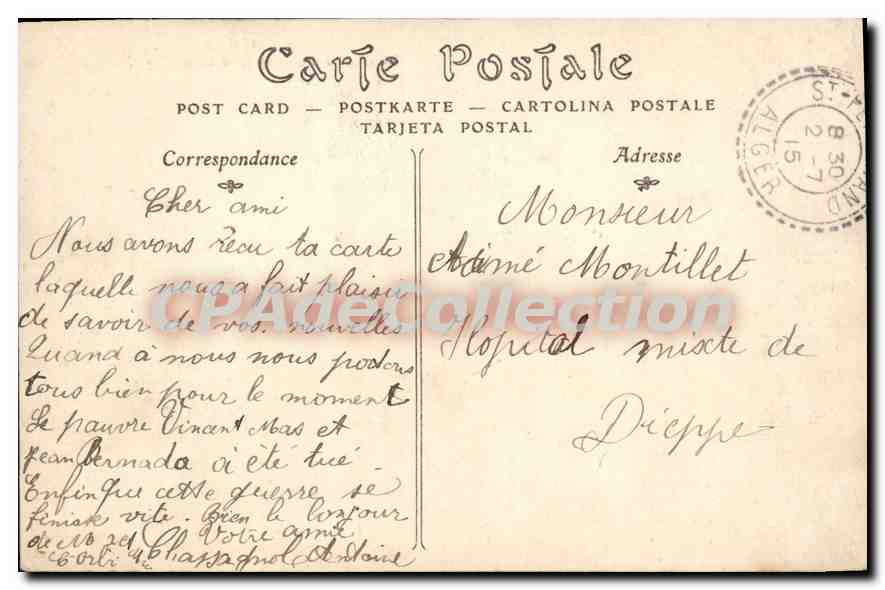 Carte Postale
POST CARD — POSTKARTE — CARTOLINA POSTALE
TARJETA POSTAL
Correspondance
Cher ami
Nous avons recu ta carte
laquelle nous a fait plaisir
de savoir de vos nouvelles
Quand à nous nous portons
tous bien pour le moment
Le pauvre Vincent Mas et
Jean Bernada à été tué
Enfin que cette guerre se
finise vite. Bien le bonjour
de
Votre amie
Chassagnol Antoine
Adresse
Monsieur
Aimé Montillet
Hopital mixte de
Dieppe
8 30
2 - 7
15
ALGER
CPAdeCollection